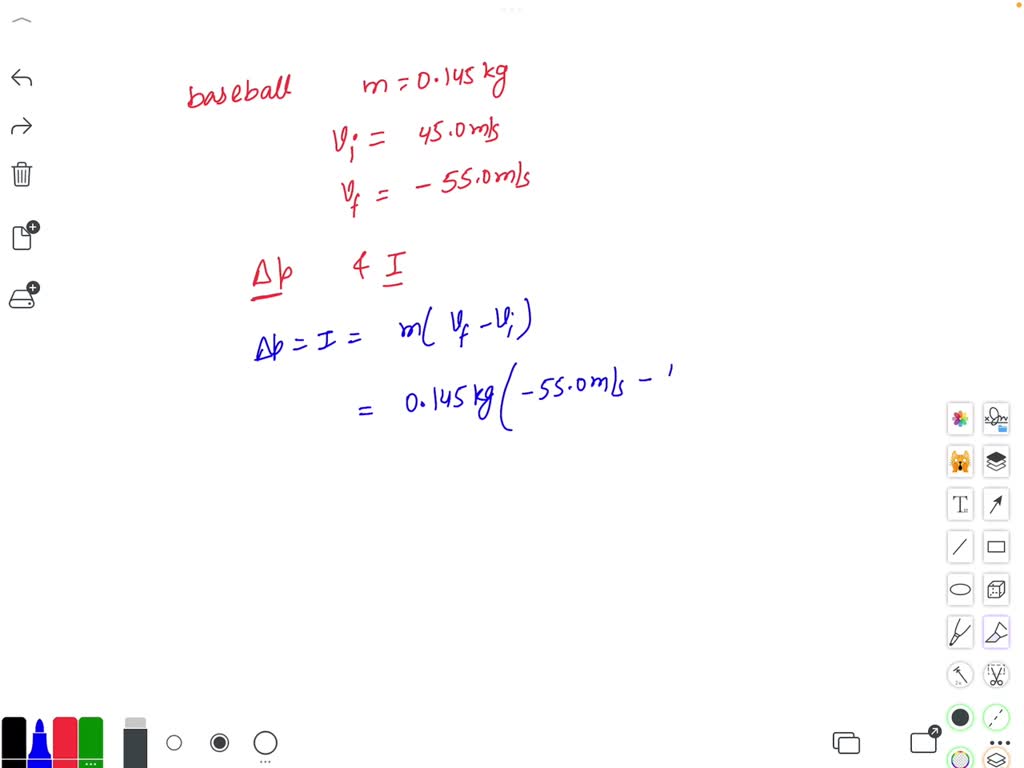 baseball m = 0.145 kg
Vi = 45.0 m/s
Vf = - 55.0 m/s
Δp & I
Δp = I = m( Vf - Vi )
= 0.145 kg ( - 55.0 m/s -